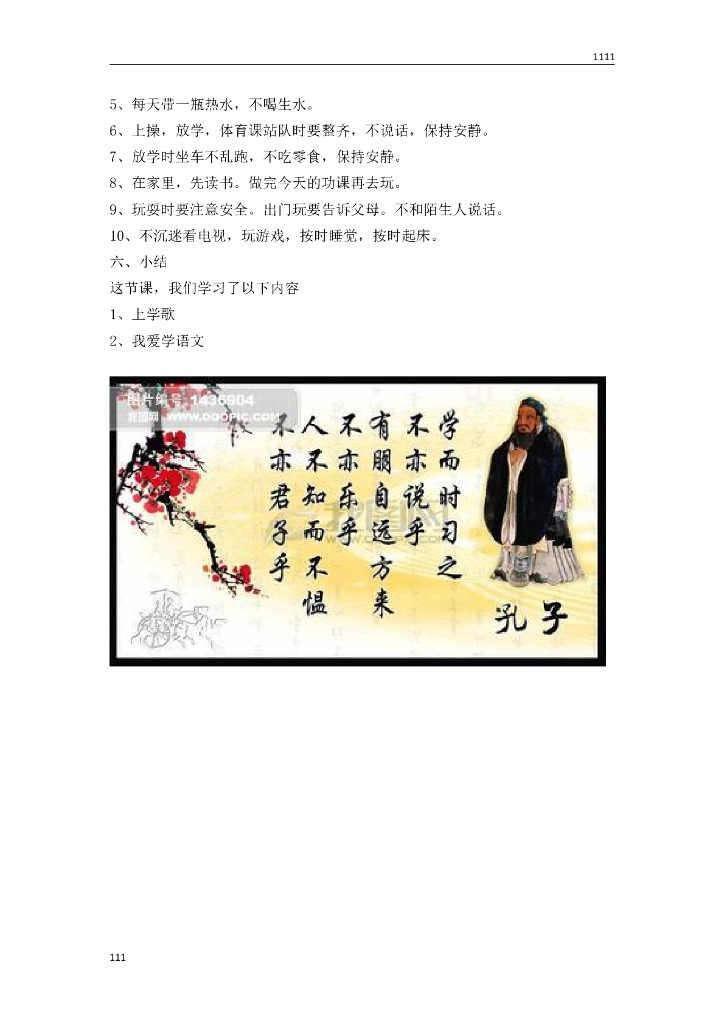 1111
5、每天带一瓶热水，不喝生水。
6、上操，放学，体育课站队时要整齐，不说话，保持安静。
7、放学时坐车不乱跑，不吃零食，保持安静。
8、在家里，先读书。做完今天的功课再去玩。
9、玩耍时要注意安全。出门玩要告诉父母。不和陌生人说话。
10、不沉迷看电视，玩游戏，按时睡觉，按时起床。
六、小结
这节课，我们学习了以下内容
1、上学歌
2、我爱学语文
图片编号:1436904
我图网 www.ooopic.com
学而时习之
不亦说乎
有朋自远方来
不亦乐乎
人不知而不愠
不亦君子乎
孔子
111